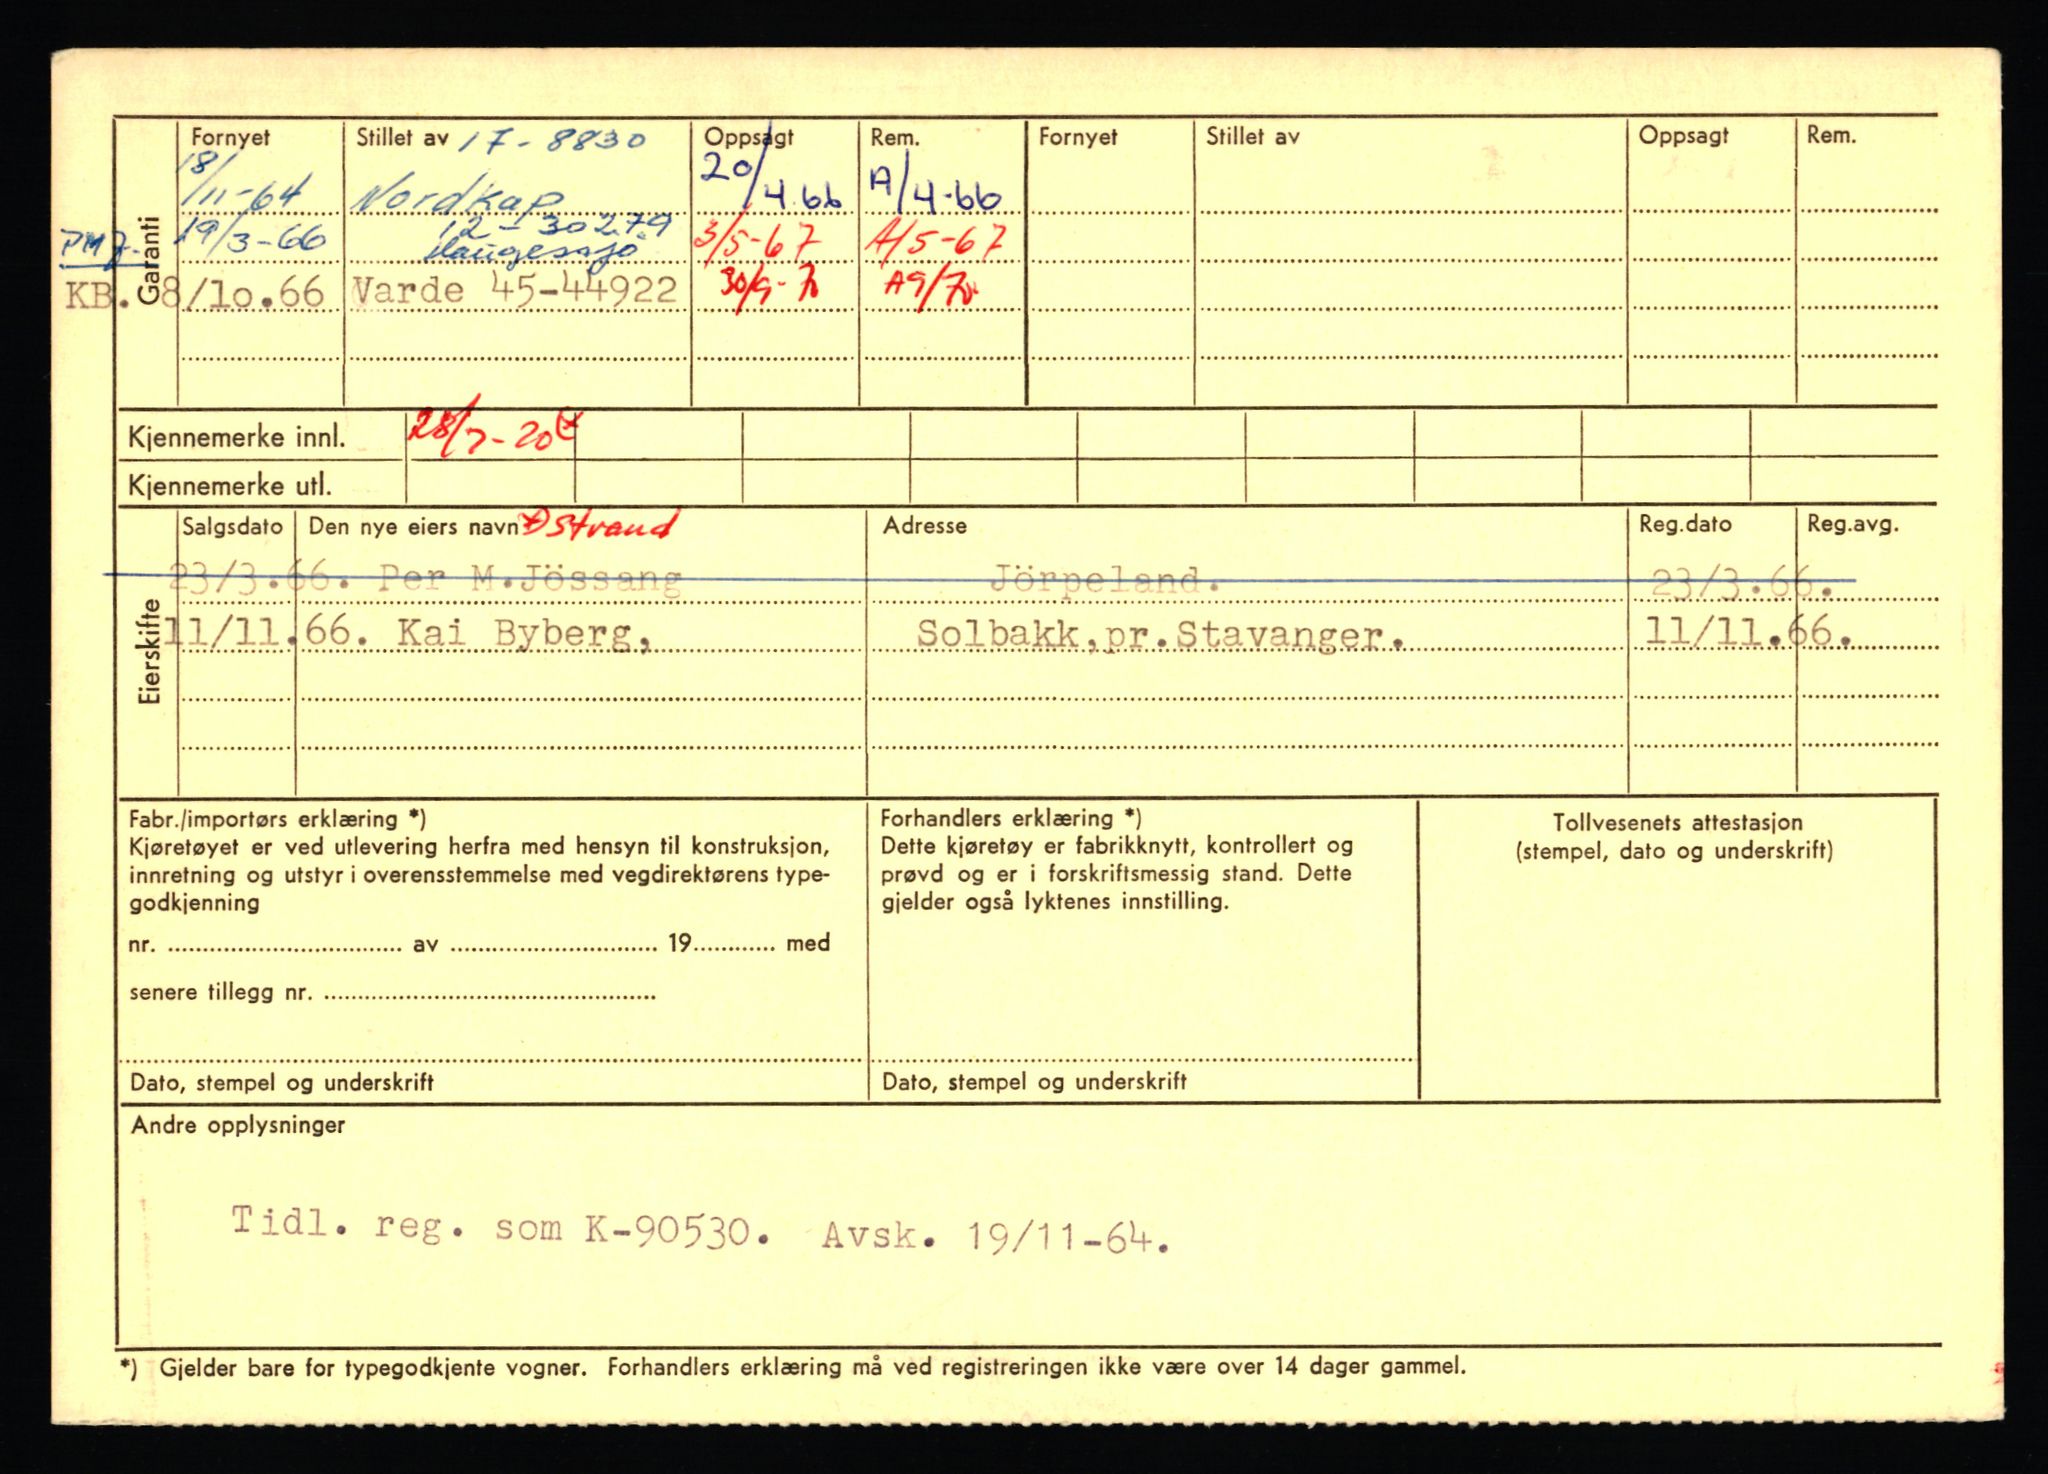 Garanti
Fornyet Stillet av 17-8830 Oppsagt Rem. Fornyet Stillet av Oppsagt Rem.
18/11-64 Nordkap 20/4.66 A/4-66
PMJ. 19/3-66 12-30279 3/5-67 A/5-67
KB. 8/10.66 Varde 45-44922 30/9-70 A9/70
Kjennemerke innl. 28/7-70
Kjennemerke utl.
Eierskifte
Salgsdato Den nye eiers navn Østrand Adresse Reg.dato Reg.avg.
23/3.66. Per M.Jössang Jörpeland. 23/3.66.
11/11.66. Kai Byberg, Solbakk,pr.Stavanger. 11/11.66.
Fabr./importørs erklæring *)
Kjøretøyet er ved utlevering herfra med hensyn til konstruksjon,
innretning og utstyr i overensstemmelse med vegdirektørens type-
godkjenning
nr. .......... av .......... 19.......... med
senere tillegg nr. ..........
Dato, stempel og underskrift
Forhandlers erklæring *)
Dette kjøretøy er fabrikknytt, kontrollert og
prøvd og er i forskriftsmessig stand. Dette
gjelder også lyktenes innstilling.
Dato, stempel og underskrift
Tollvesenets attestasjon
(stempel, dato og underskrift)
Andre opplysninger
Tidl. reg. som K-90530. Avsk. 19/11-64.
*) Gjelder bare for typegodkjente vogner. Forhandlers erklæring må ved registreringen ikke være over 14 dager gammel.